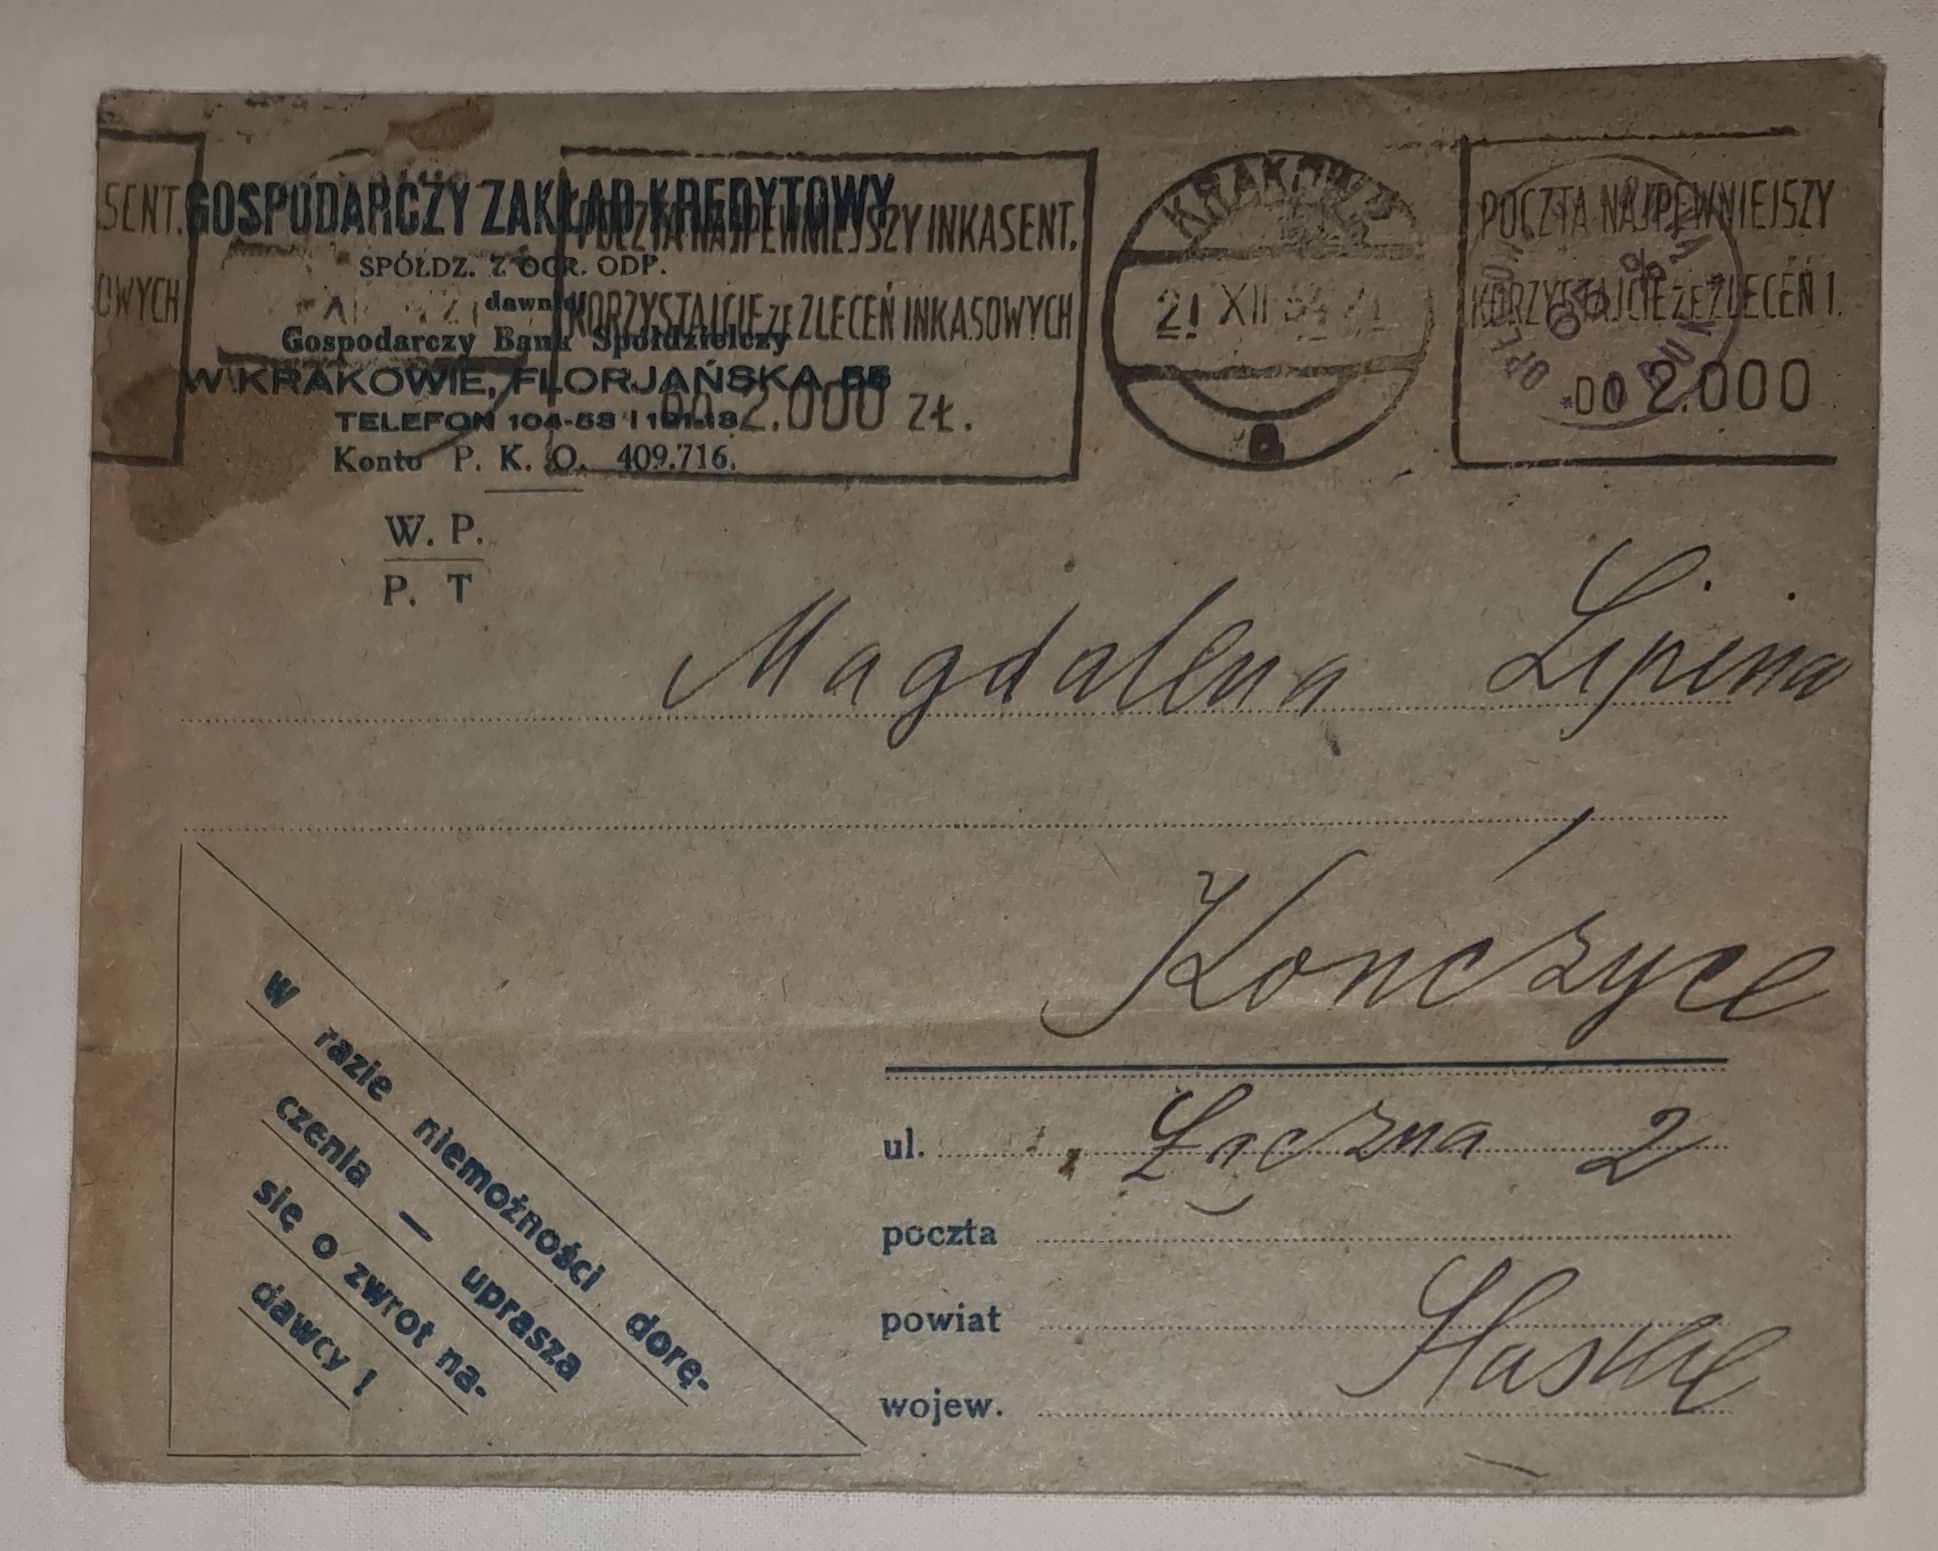 SENT.
OWYCH
GOSPODARCZY ZAKŁAD KREDYTOWY
SPÓŁDZ. Z OGR. ODP.
dawniej
Gospodarczy Bank Spółdzielczy
W KRAKOWIE, FLORJAŃSKA 55
TELEFON 104-53 i
Konto P. K. O. 409.716.
POCZTA NAJPEWNIEJSZY INKASENT.
KORZYSTAJCIE ZE ZLECEŃ INKASOWYCH
DO 2.000 ZŁ.
KRAKÓW
21 XII
a
POCZTA NAJPEWNIEJSZY
KORZYSTAJCIE ZE ZLECEŃ I.
DO 2.000
W. P.
P. T
Magdalena Lipina
Kończyce
ul. Łączna 2
poczta
powiat
wojew. Śląskie
W razie niemożności dorę-
czenia — uprasza
się o zwrot na-
dawcy !